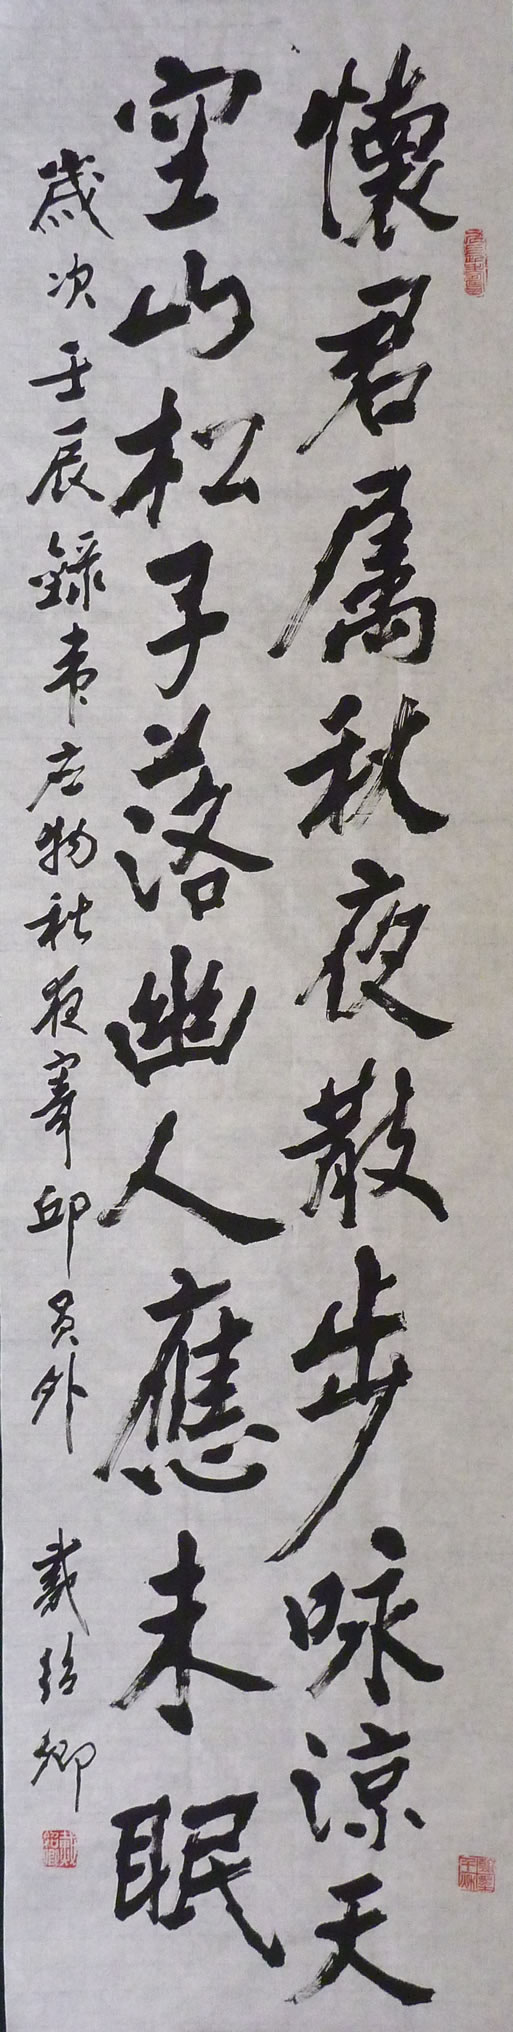 懷君属秋夜散步咏涼天
空山松子落幽人應未眠
歲次壬辰錄韦应物秋夜寄邱員外 戴
卿